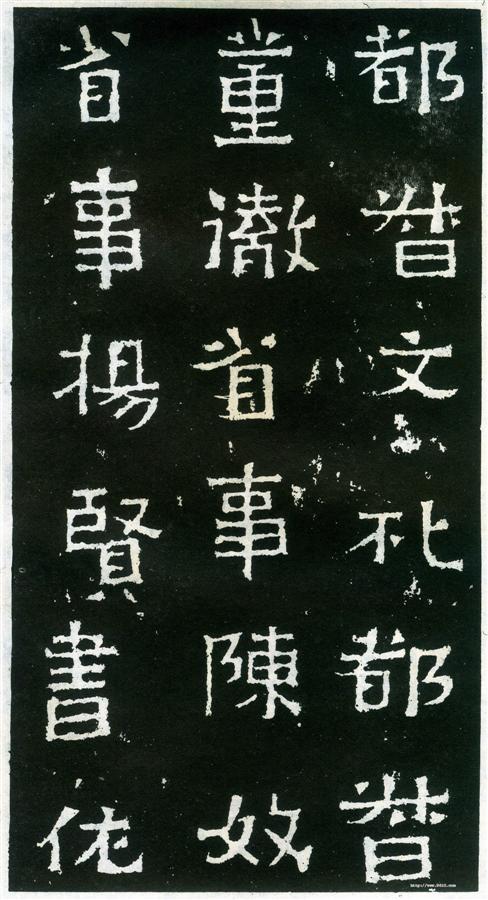 都督文礼都督
董徹省事陳奴
省事揚賢書佐
http://www.9610.com